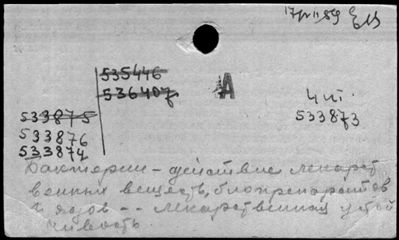 17/VI 59
535446
536407
А
4 п.
533873
533875
533876
533874
Бактерии – действие лекарст
венных веществ, биопрепаратов
и ядов -- лекарственная устой
чивость